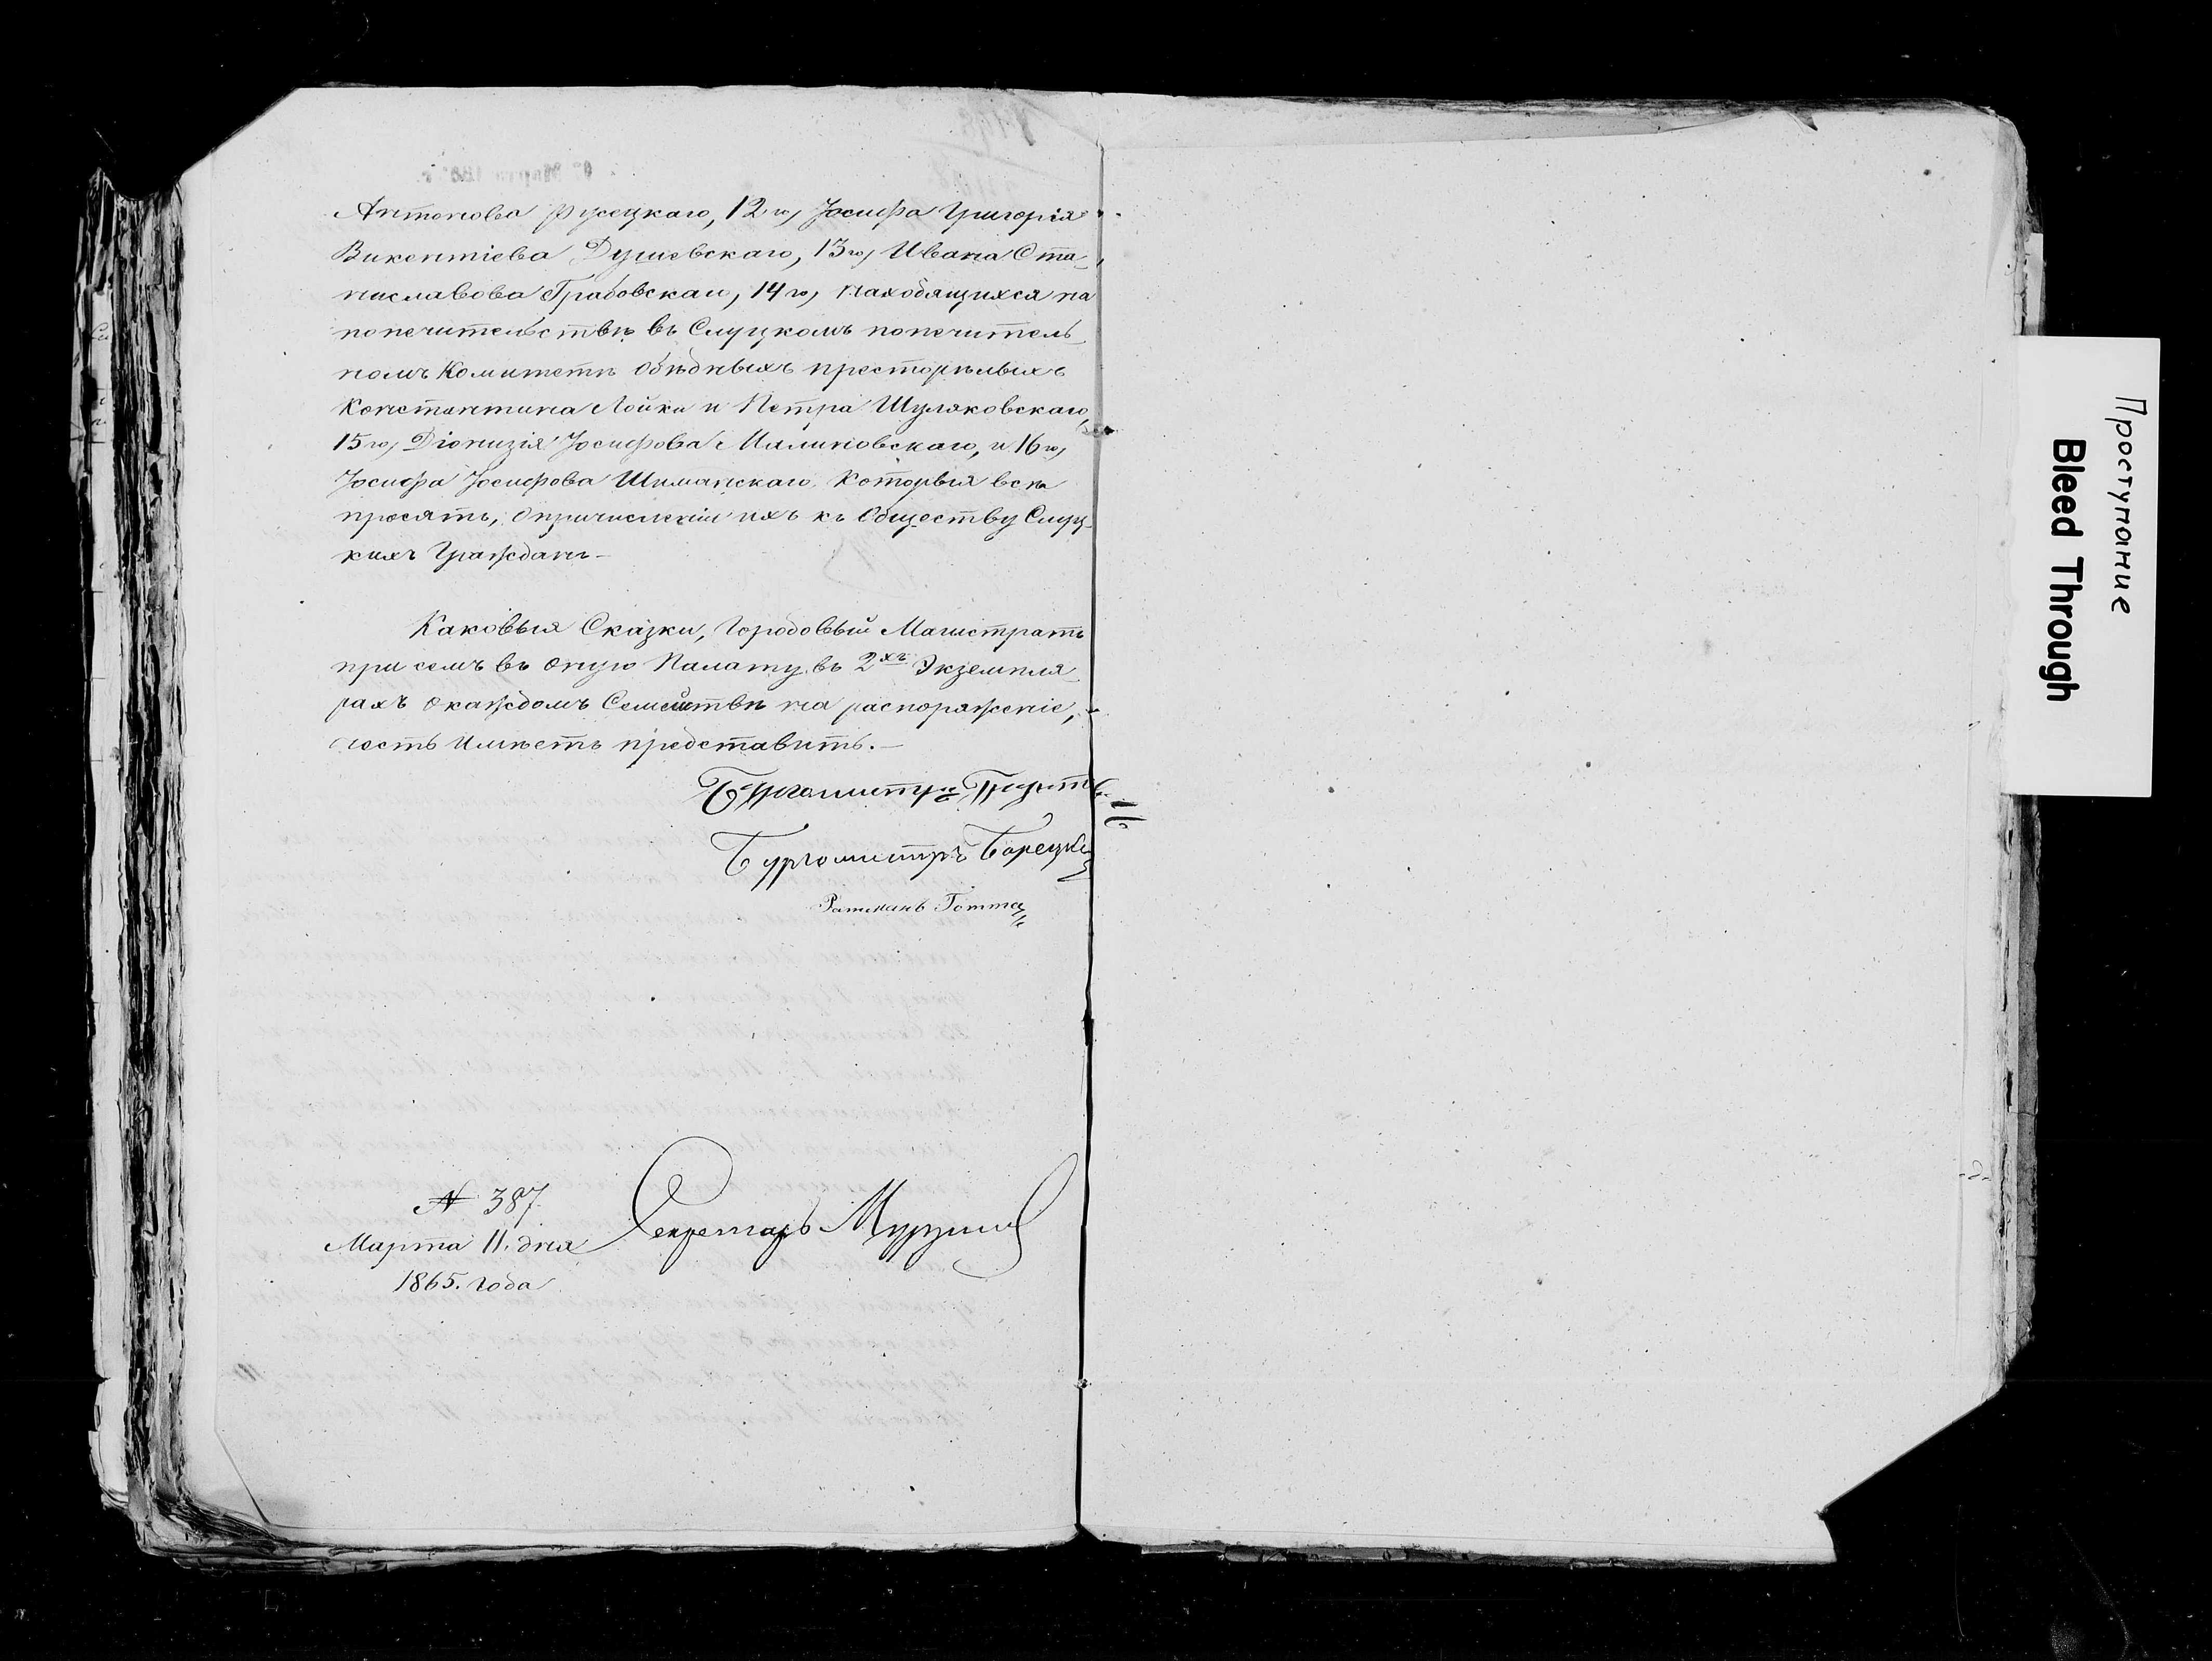 Антонова Русецкаго, 12го, Іосифа Григорія
Викентіева Душевскаго, 13го, Ивана Ста-
ниславова Грабовскаго, 14го, находящихся на
попечительствѣ въ Слуцкомъ попечитель-
номъ Комитетѣ обѣдныхъ престорѣлыхъ
Константина Лойки и Петра Шуляковскаго,
15го, Діонизія Іосифова Малиновскаго, и 16го,
Іосифа Іосифова Шиманскаго. Которыя всѣ
просятъ, опричисленіи ихъ къ Обществу Слуц-
кихъ Гражданъ-
Каковыя Сказки, Городовый Магистратъ
при семъ въ оную Палату въ 2хъ Экземпля
рахъ окаждомъ Семействѣ на распоряженіе,
честь Имѣетъ представить.-
Бургомистръ
Бургомистръ Борецкій
Ратманъ Готта
№ 387.
Секретарь
Марта 11. дня
1865. года
Проступание
Bleed Through